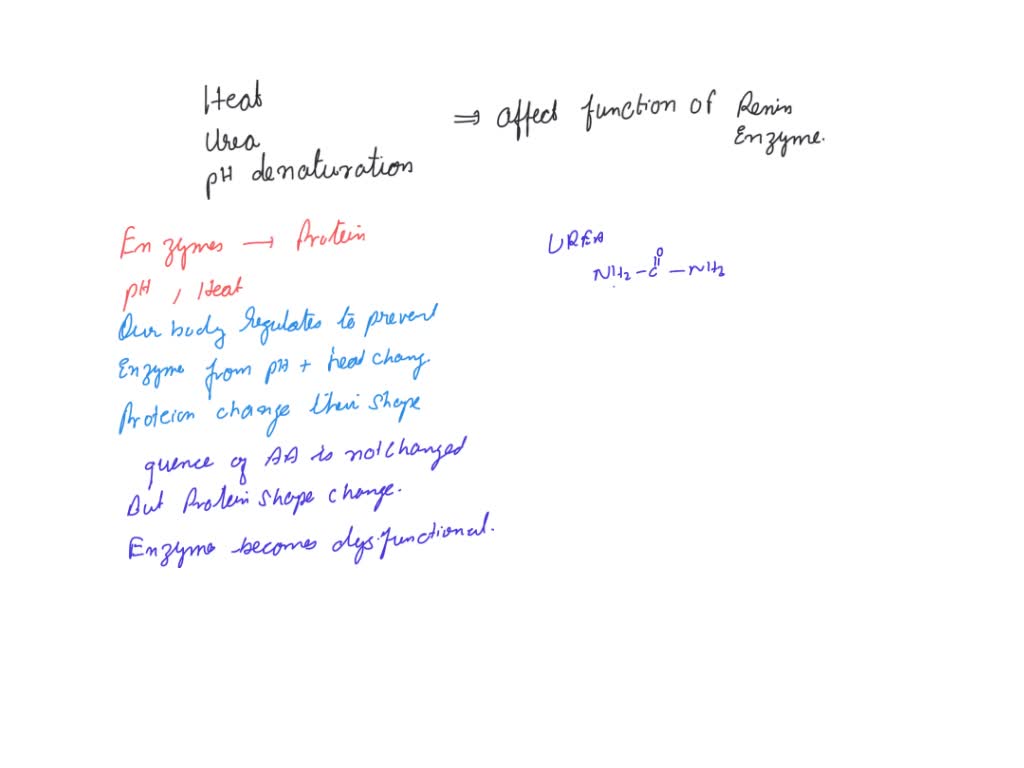 Heat
Urea
pH denaturation
⇒ affect function of Renin
Enzyme.
Enzymes → Protein
pH , Heat
Our body regulates to prevent
Enzyme from pH + heat chang.
Proteion change their shape
quence of AA is not changed
But Protein shape change.
Enzyme becomes dysfunctional.
UREA
O
NH2-C-NH2